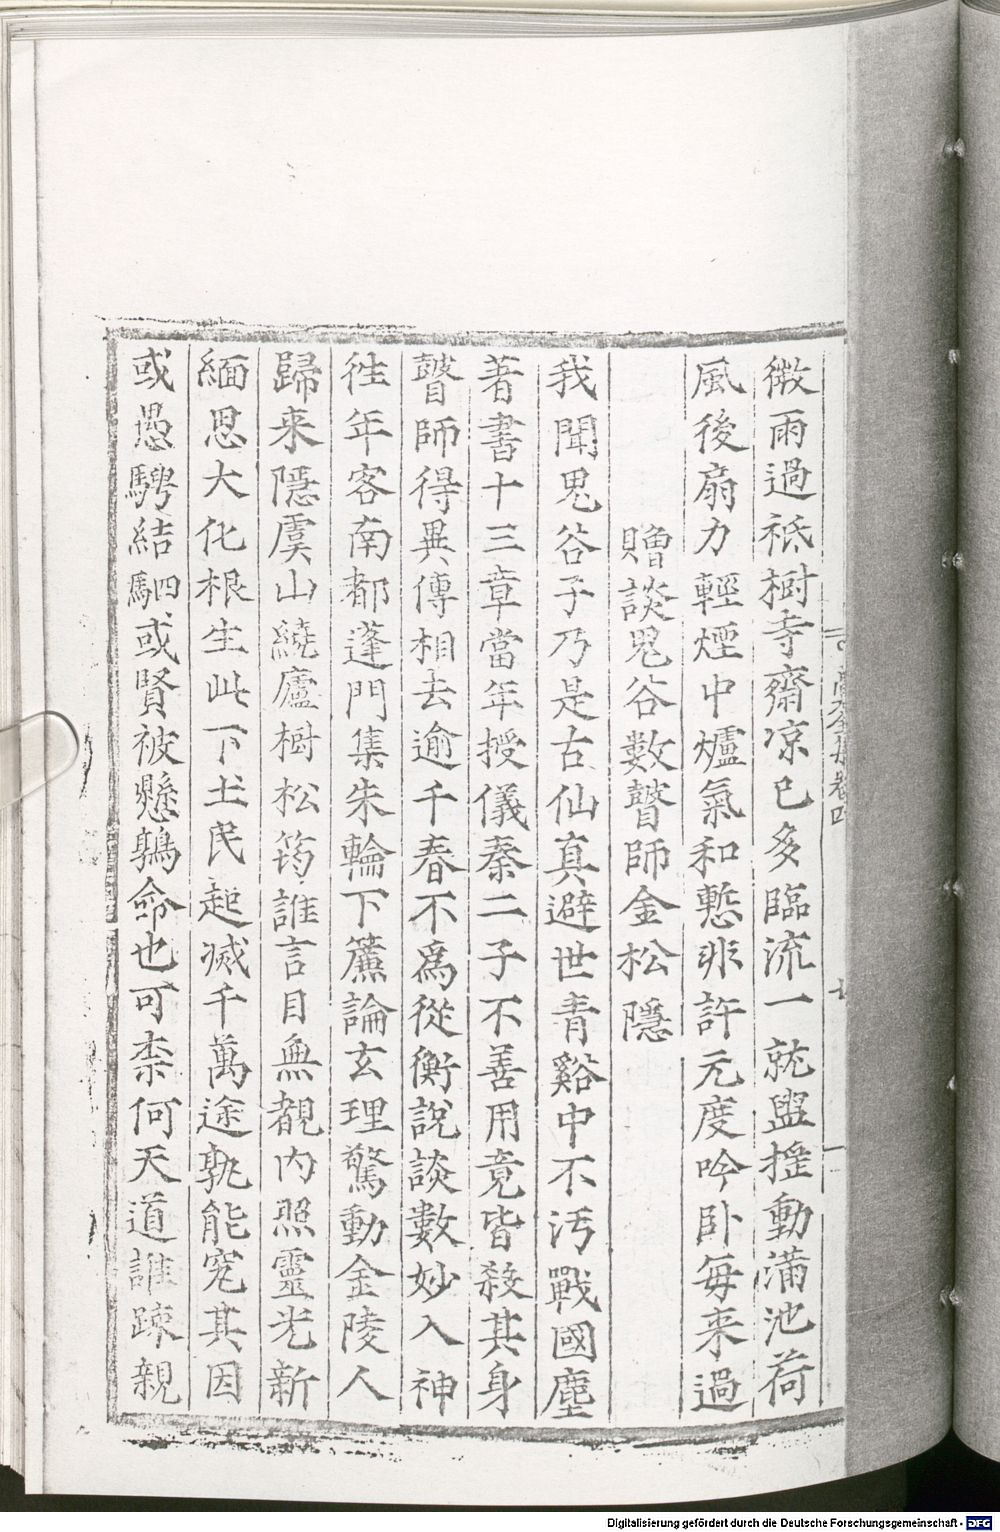 微雨過祇樹寺齋凉已多臨流一就盥揺動滿池荷
風後扇力輕煙中爐氣和慙非許元度吟卧每来過
贈談鬼谷數瞽師金松隱
我聞鬼谷子乃是古仙真避世青谿中不汚戰國塵
著書十三章當年授儀秦二子不善用竟皆殺其身
瞽師得異傳相去逾千春不爲從衡說談數妙入神
徃年客南都蓬門集朱輪下簾論玄理驚動金陵人
歸来隱虞山繞廬樹松筠誰言目無覩内照靈光新
緬思大化根生此下土民起滅千萬途孰能究其因
或愚騁結駟或賢被懸鶉命也可柰何天道誰踈親
全集卷四
七
Digitalisierung gefördert durch die Deutsche Forschungsgemeinschaft - DFG